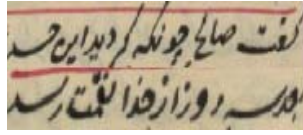 گفت صالح چونکه کردید این حسد
بعد سه روز از خدا نقمت رسد